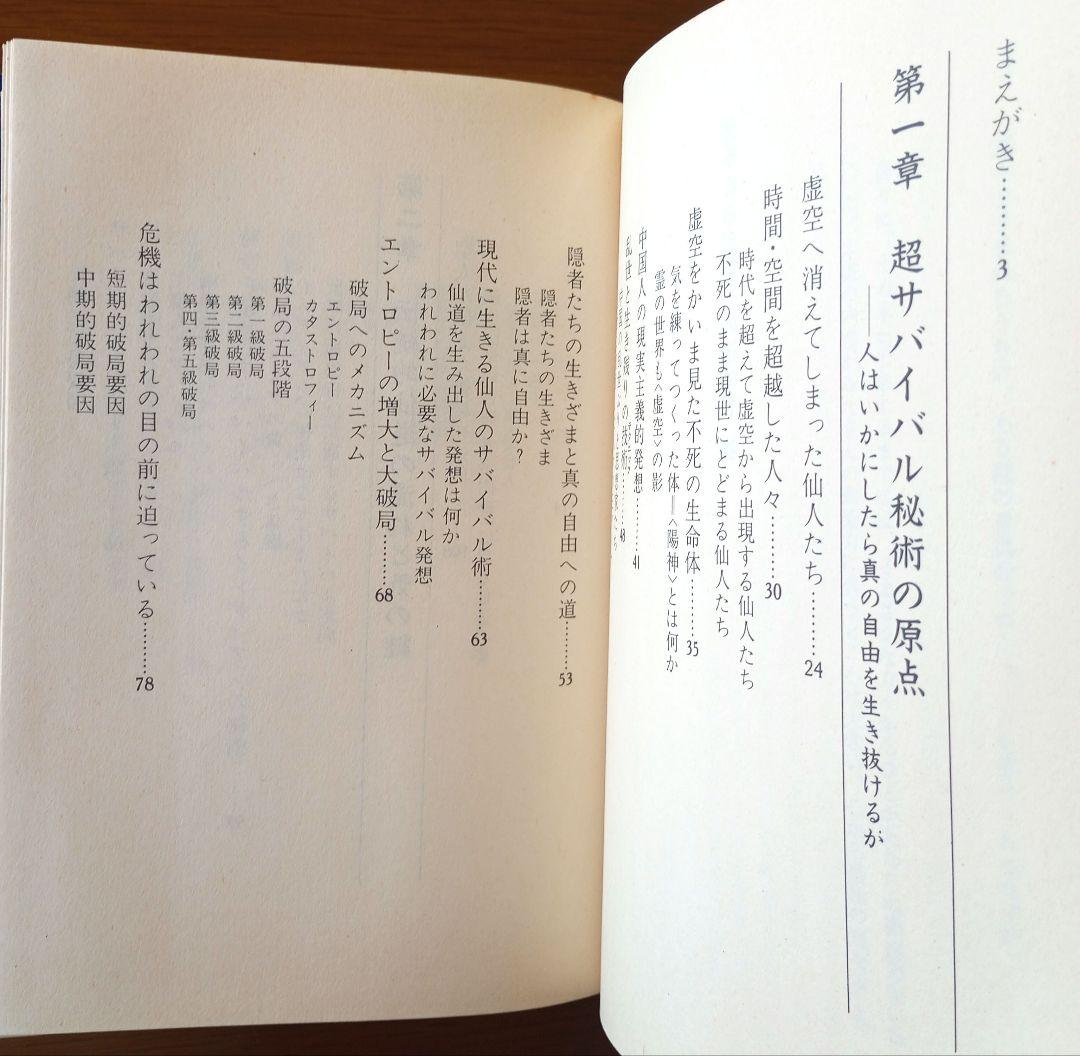 まえがき…………3
第一章　超サバイバル秘術の原点
――人はいかにしたら真の自由を生き抜けるか
虚空へ消えてしまった仙人たち………24
時間・空間を超越した人々………30
時代を超えて虚空から出現する仙人たち
不死のまま現世にとどまる仙人たち
虚空をかいま見た不死の生命体………35
気を練ってつくった体＝〈陽神〉とは何か
霊の世界も〈虚空〉の影
中国人の現実主義的発想………41
乱世と生き残りの技術………48
隠者たちの生きざまと真の自由への道………53
隠者たちの生きざま
隠者は真に自由か？
現代に生きる仙人のサバイバル術………63
仙道を生み出した発想は何か
われわれに必要なサバイバル発想
エントロピーの増大と大破局………68
破局へのメカニズム
エントロピー
カタストロフィー
破局の五段階
第一級破局
第二級破局
第三級破局
第四・第五級破局
危機はわれわれの目の前に迫っている………78
短期的破局要因
中期的破局要因